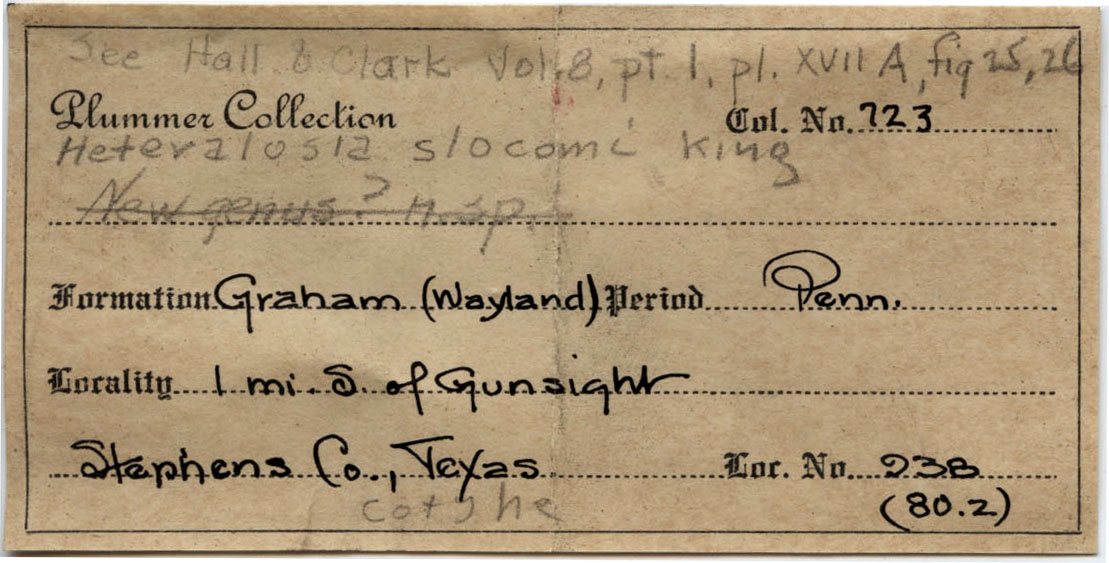 See Hall & Clark Vol. 8, pt 1, pl. XVII A, fig 25, 26
Plummer Collection Col. No. 723
Heteralosia slocomi King
New genus? n. sp.
Formation Graham (Wayland) Period Penn.
Locality 1 mi. S. of Gunsight
Stephens Co., Texas Loc. No. 238
(80.2)
cotype